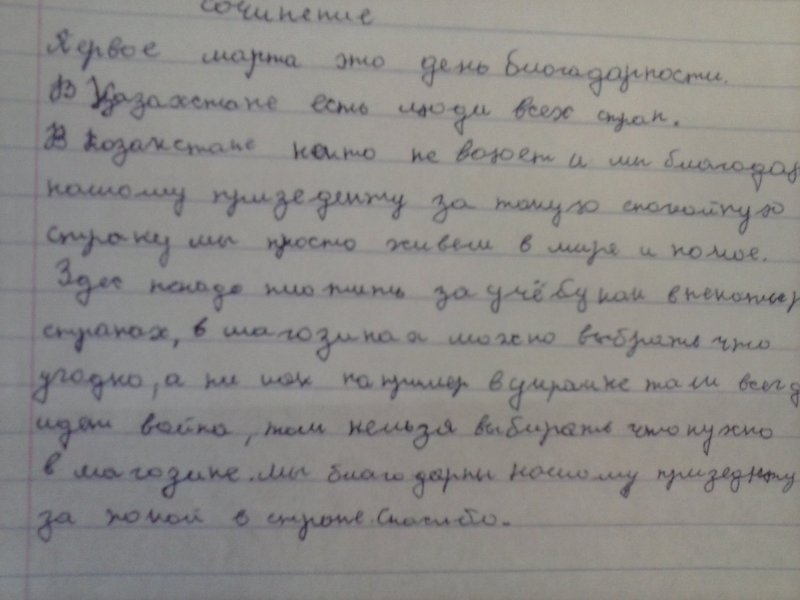 Сочинение
Первое марта это день благодарности.
В Казахстане есть люди всех стран.
В Козахстане никто не воюет и мы благодар
нашому призеденту за такую спокойную
страну мы просто живем в мире и покое.
Здес ненадо плотить за учёбу как в некотор
странах, в магозинах можно выбрать что
угодно, а не как например в украине там всегд
идет война, там нельзя выбирать что нужно
в магозине. мы благодарны нашому призеденту
за покой в стране. Спасибо.